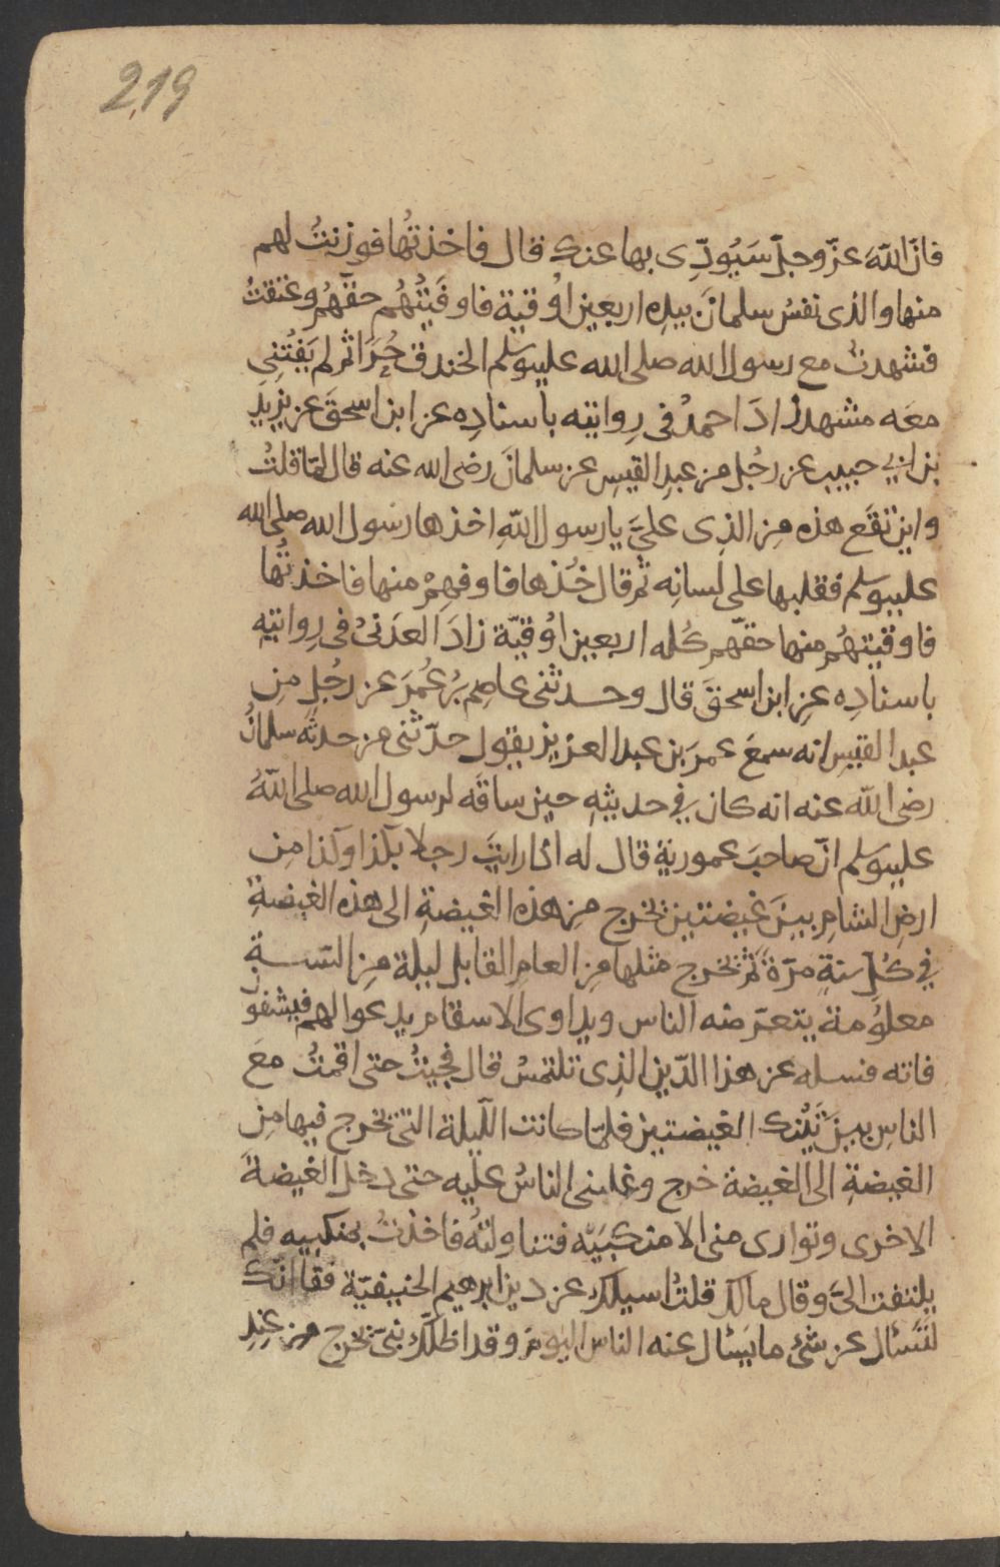 219
فانّ الله عزّ وجلّ سَيُودّى بها عنك قال فاخذتُها فوزنتُ لهم
منها والذى نفسُ سلمانَ بيدِه اربعين اوُقية فاوفَيتُهُم حقّهُم وعتقتُ
فشهدتُ مع رسول الله صلى الله عليه وسلم الخندق حُرّا ثم لم يَفُتْنِى
معَه مشهد زادَ احمدُ فى رِوايته باسنادِه عن ابن اسحقَ عن يزيد
بن ابي حبيب عن رجُل من عبدِ القيسِ عن سلمانَ رضى الله عنه قال لمّا قلتُ
واين تقَع هذه مِن الذِى علىّ يا رسول اللهِ اخذها رسُول الله صلى الله
عليه وسلم فقلبها على لسانِه ثم قال خُذها فاوفهِمْ منها فاخذتُها
فاوفيتهُم منها حقّهم كُله اربعين اوُقيّة زادَ العدَنىُ فى رِوايتِه
باسنادِه عنِ ابن اسحقَ قال وحدثنى عاصِم بنُ عُمرَ عن رجُلٍ مِن
عبد القيسِ انه سمعَ عمرَ بن عبد العزيز يقول حدّثنى من حدثه سلمانُ
رضى الله عنه انه كان في حديثِه حين ساقَه لرسول الله صلى اللهُ
عليه وسلم انّ صاحبَ عمورية قال له اذا رايتَ رجلا بكذا وكذا مِن
ارضِ الشامِ بينَ غيضتين تخرج من هذه الغيضةِ الى هذه الغيضةِ
في كُلّ سنةٍ مرّةً ثم تخرج مثلها مِن العامِ القابل ليلة مِن السّنةِ
معلوُمة يتعرّضه الناس ويداوى الاسقام يدعوا لهم فيشفون
فاته فسله عن هذا الدّين الذِى تلتمسُ قال فجيتُ حتى اقمتُ معَ
الناسِ بينَ تَيْنِك الغيضتين فلمّا كانت اللّيلة التى تخرج فيها مِن
الغيضةِ الى الغيضة خرج وغلبنى الناسُ عليه حتى دخل الغيضةَ
الاخرى وتوارى منى الا منكبَيه فتناولتُه فاخذتُ بمنكبيه فلم
يلتفت الىّ وقال مالك قلتُ اسيلك عن دين ابرهيم الحنيفيّة فقا انّك
لتَسَالُ عن شئ ما يَسْال عنه الناس اليومَ وقد اظلّك نبىّ تخرج من عِندِ